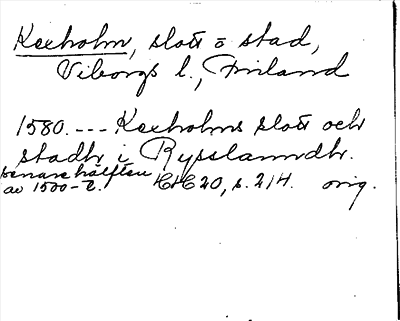 Kexholm, slott o stad,
Viborgs l., Finland
1580. --- Kexholms slott och
stadh i Rysslanndh.
senare hälften
av 1500-t. HH 20, s. 214. orig.